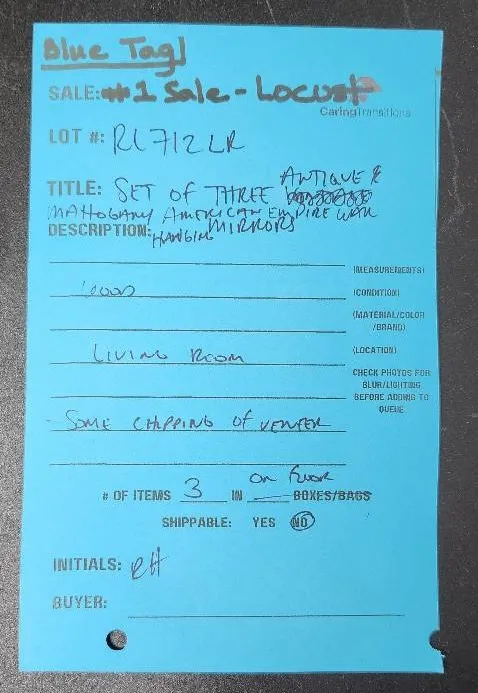 Blue Tag!
SALE: #1 Sale - Locust
CaringTransitions
LOT #: RL712LR
TITLE: SET OF THREE ANTIQUE &
MAHOGANY AMERICAN EMPIRE WALL
DESCRIPTION: HANGING MIRRORS
(MEASUREMENTS)
GOOD (CONDITION)
(MATERIAL/COLOR
/BRAND)
LIVING ROOM (LOCATION)
CHECK PHOTOS FOR
BLUR/LIGHTING
BEFORE ADDING TO
QUEUE
- SOME CHIPPING OF VENEER
# OF ITEMS 3 IN on Floor BOXES/BAGS
SHIPPABLE: YES NO
INITIALS: RH
BUYER: